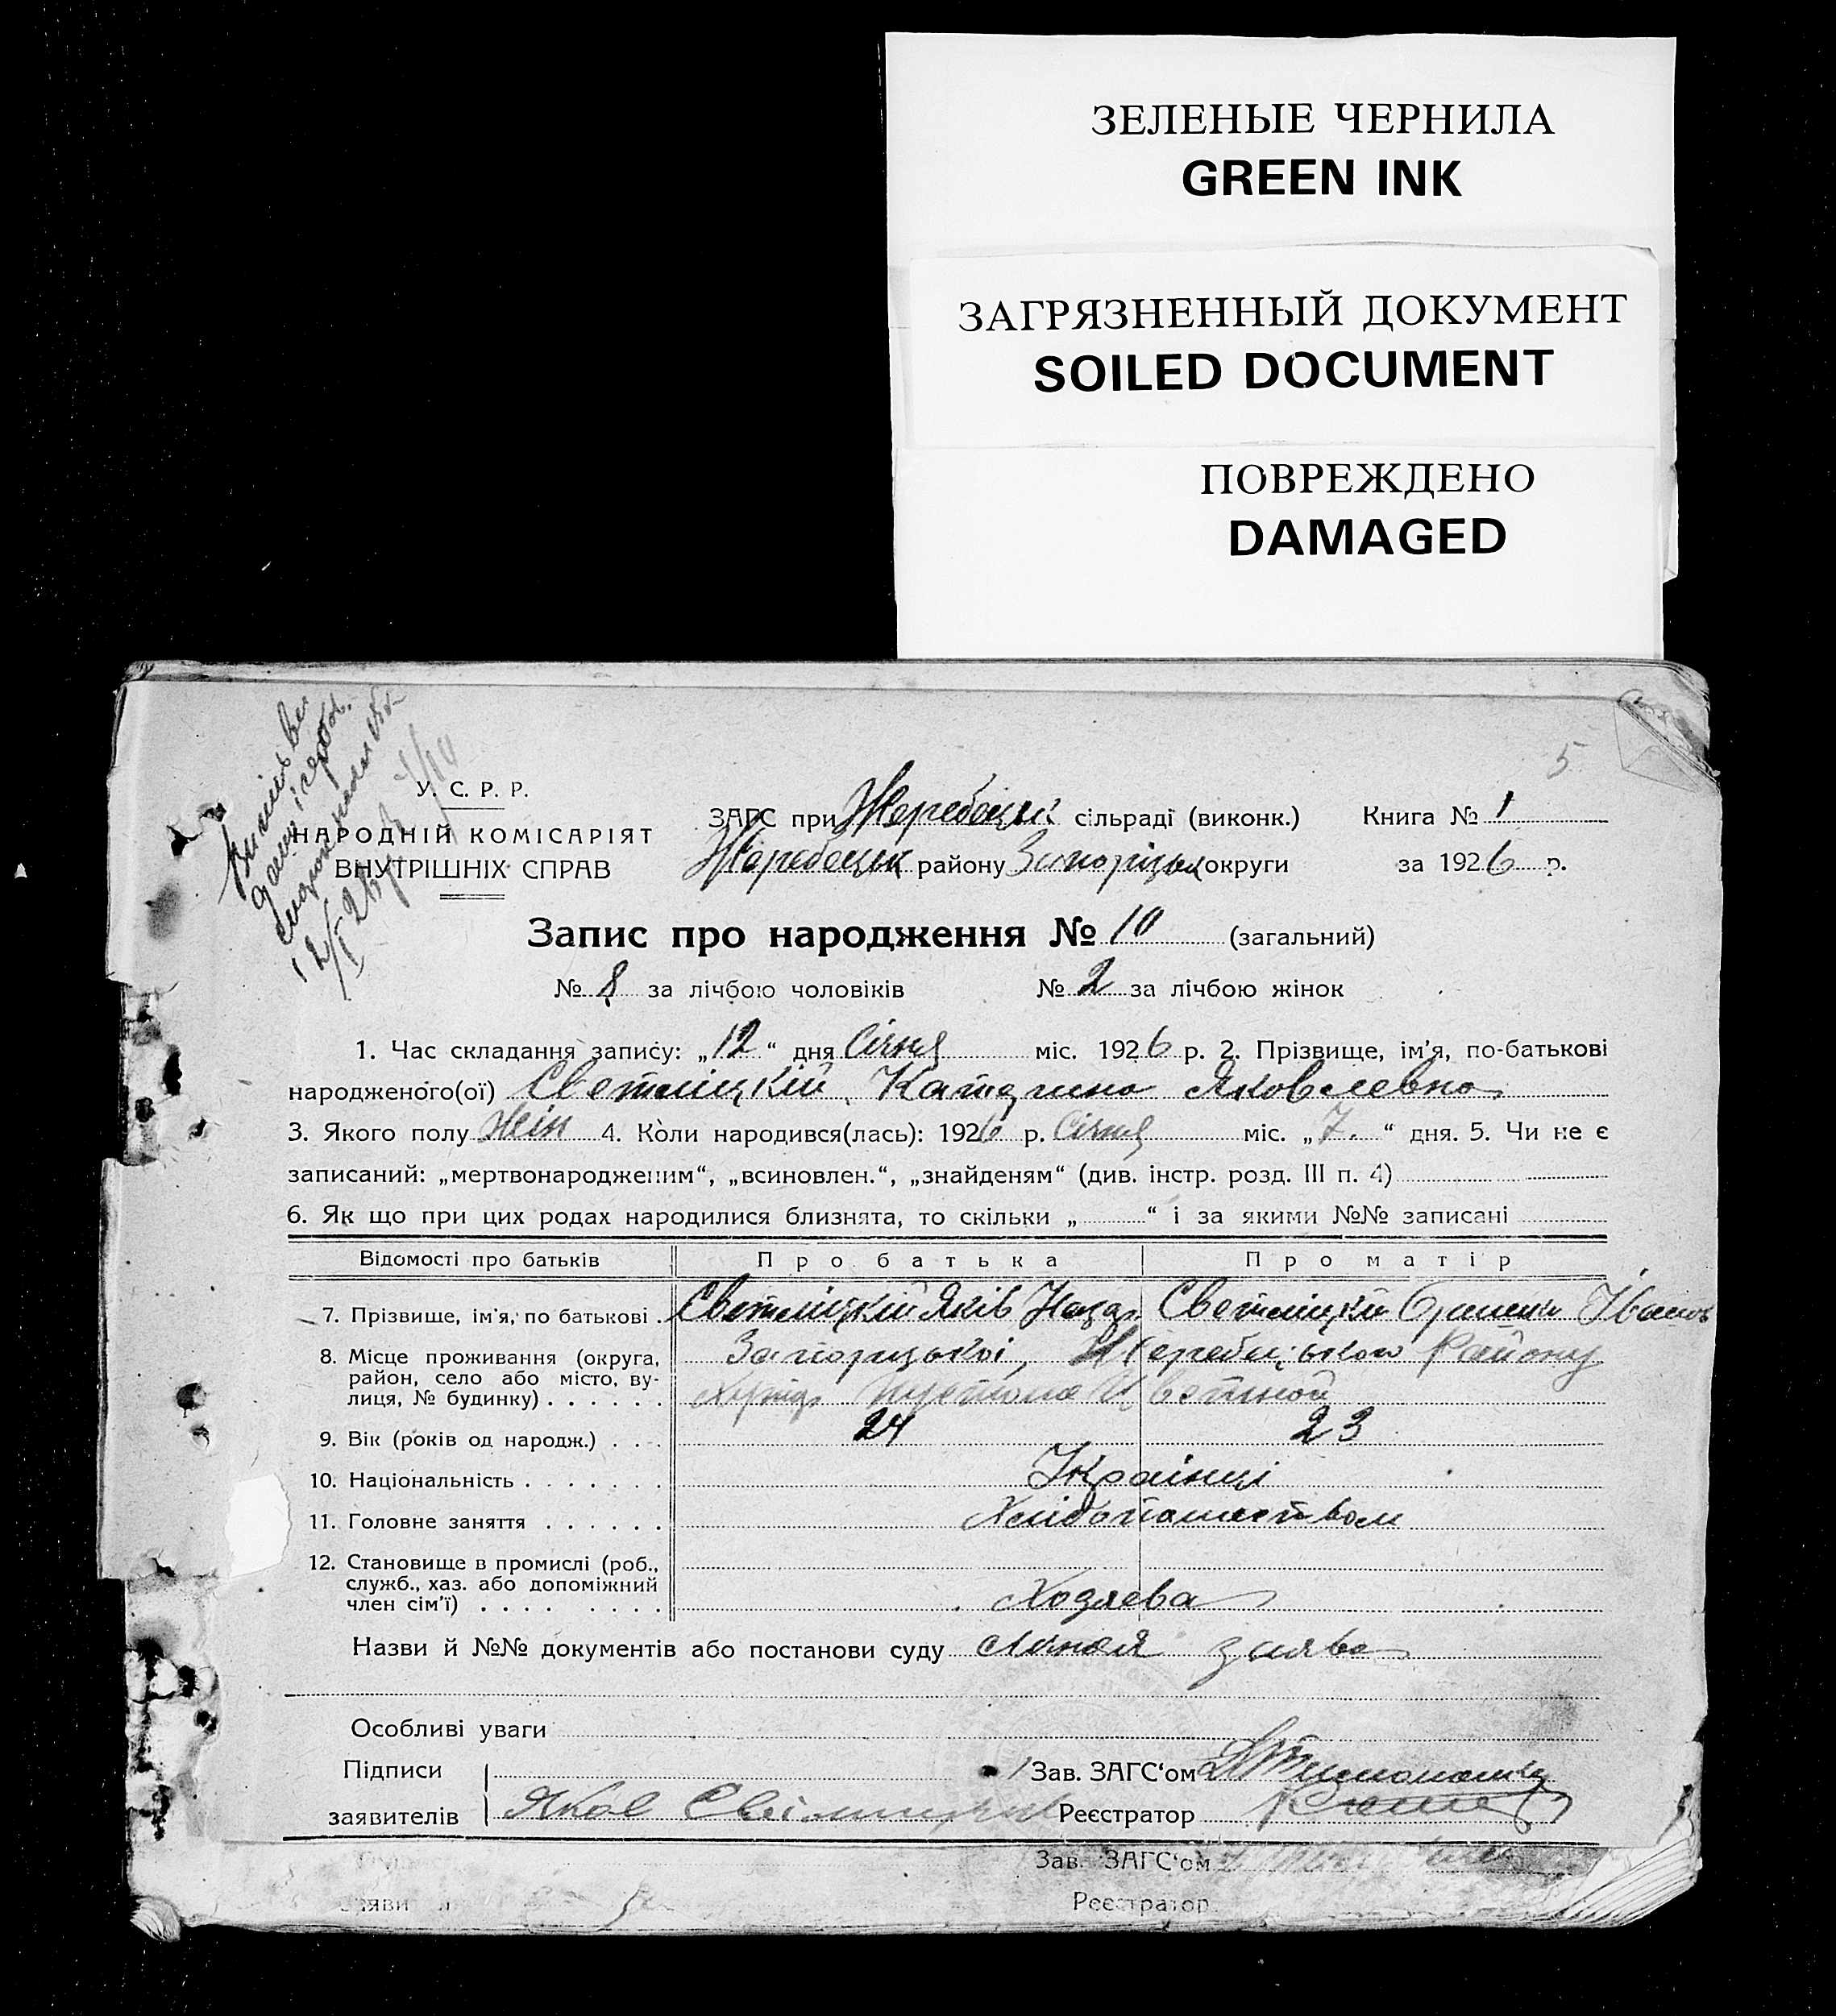 ЗЕЛЕНЫЕ ЧЕРНИЛА
GREEN INK
ЗАГРЯЗНЕННЫЙ ДОКУМЕНТ
SOILED DOCUMENT
ПОВРЕЖДЕНО
DAMAGED
5
У. С. Р. Р.
НАРОДНІЙ КОМІСАРІЯТ
ВНУТРІШНІХ СПРАВ
12/I 26 р
ЗАГС при Жеребецкі сільраді (виконк.) Книга № 1
Жеребецьк району Запоріцьк округи за 1926 р.
Запис про народження № 10 (загальний)
№ 8 за лічбою чоловіків № 2 за лічбою жінок
1. Час складання запису: „12“ дня Січня міс. 1926 р. 2. Прізвище, ім’я, по-батькові
народженого(ої) Светліцкій Катерина Яковлевна
3. Якого полу Жін 4. Коли народився(лась): 1926 р. Січня міс. „7.“ дня. 5. Чи не є
записаний: „мертвонародженим“, „всиновлен.“, „знайденям“ (див. інстр. розд. III п. 4)
6. Як що при цих родах народилися близнята, то скільки „ “ і за якими №№ записані
Відомості про батьків Про батька Про матір
7. Прізвище, ім’я, по батькові Светліцкій Яків Назар Светліцкій Іванов
8. Місце проживання (округа, Запоріцькоі, Жеребецького Району
район, село або місто, ву-
лиця, № будинку) Хутір
9. Вік (років од народж.) 24 23
10. Національність Українці
11. Головне заняття Хлібопашеством
12. Становище в промислі (роб.,
служб., хаз. або допоміжний
член сім’ї) Хозяева
Назви й №№ документів або постанови суду Лічная заява
Особливі уваги
Підписи Зав. ЗАГС‘ом
заявителів Яков Реєстратор
Зав. ЗАГС‘ом
Реєстратор